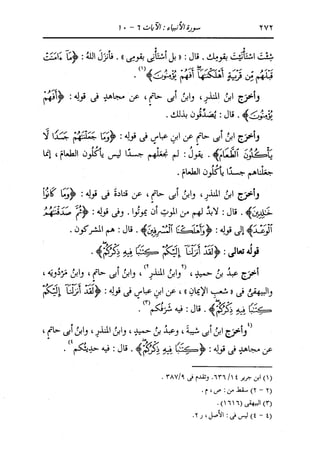 ٢٧٢ سورة الأنبياء : الآيات ٦ - ١٠
شِئْتَ استَأْنَيْتَ بقومِك. قال: «بل أستَأْنِى بقومِى». فأنزَل اللهُ: ﴿مَآ ءَامَنَتْ
قَبْلَهُم مِّن قَرْيَةٍ أَهْلَكْنَٰهَآ أَفَهُمْ يُؤْمِنُونَ﴾(١).
وأخرَج ابنُ المنذرِ، وابنُ أبى حاتمٍ، عن مجاهدٍ فى قولِه: ﴿أَفَهُمْ
يُؤْمِنُونَ﴾. قال: يُصَدِّقُون بذلك.
وأخرَج ابنُ أبى حاتمٍ عن ابنِ عباسٍ فى قولِه: ﴿وَمَا جَعَلْنَٰهُمْ جَسَدًا لَّا
يَأْكُلُونَ ٱلطَّعَامَ﴾. يقولُ: لم نجعَلْهم جسدًا ليس يأكُلون الطعامَ، إنما
جعَلناهم جسدًا يأكُلون الطعامَ.
وأخرَج ابنُ المنذرِ، وابنُ أبى حاتمٍ، عن قتادةَ فى قولِه: ﴿وَمَا كَانُوا۟
خَٰلِدِينَ﴾. قال: لابدَّ لهم من الموتِ أن يموتُوا. وفى قولِه: ﴿ثُمَّ صَدَقْنَٰهُمُ
ٱلْوَعْدَ﴾ إلى قولِه: ﴿وَأَهْلَكْنَا ٱلْمُسْرِفِينَ﴾. قال: هم المشركون.
قولُه تعالى: ﴿لَقَدْ أَنزَلْنَآ إِلَيْكُمْ كِتَٰبًا فِيهِ ذِكْرُكُمْ﴾.
أخرَج عبدُ بنُ حميدٍ، (٢وابنُ المنذرِ٢)، وابنُ أبى حاتمٍ، وابنُ مَرْدُويَه،
والبيهقىُّ فى «شعبِ الإيمانِ»، عن ابنِ عباسٍ فى قولِه: ﴿لَقَدْ أَنزَلْنَآ إِلَيْكُمْ
كِتَٰبًا فِيهِ ذِكْرُكُمْ﴾. قال: فيه شَرَفُكم(٣).
(٤وأخرَج ابنُ أبى شيبةَ، وعبدُ بنُ حميدٍ، وابنُ المنذرِ، وابنُ أبى حاتمٍ،
عن مجاهدٍ فى قولِه: ﴿كِتَٰبًا فِيهِ ذِكْرُكُمْ﴾. قال: فيه حديثُكم٤).
(١) ابن جرير ١٤/ ٦٣٦. وتقدم فى ٩/ ٣٨٧.
(٢ - ٢) سقط من: ص، م.
(٣) البيهقى (١٦١٦).
(٤ - ٤) ليس فى: الأصل، ر ٢.